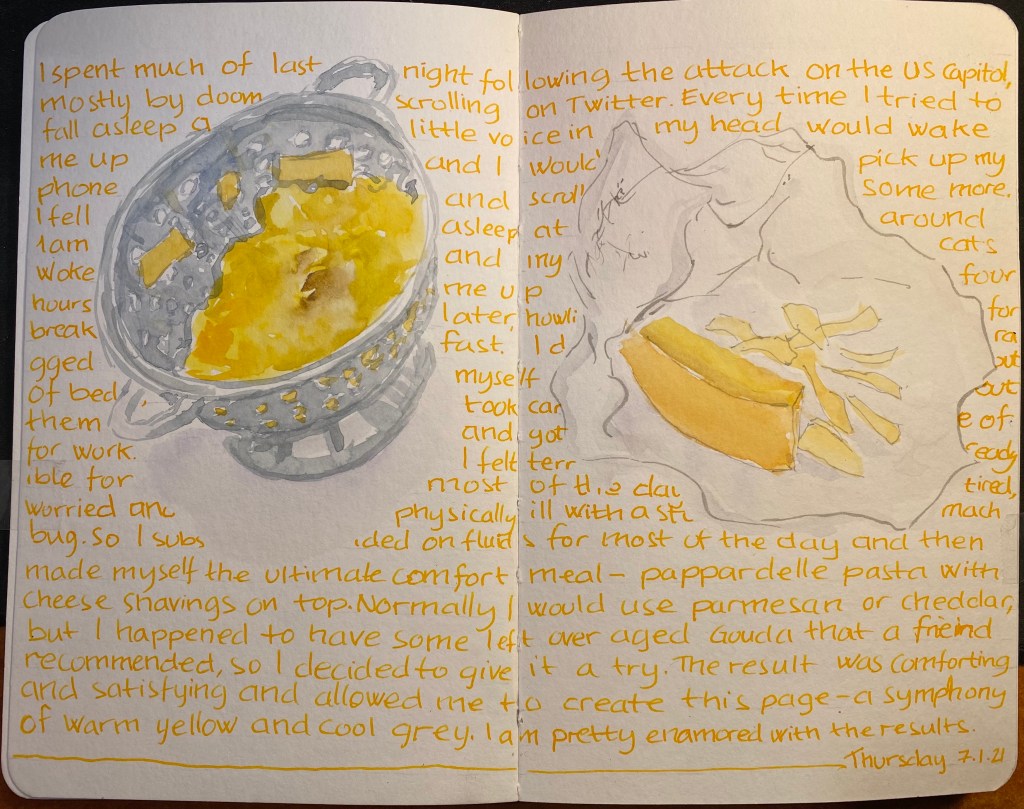 I spent much of last night following the attack on the US Capitol,
mostly by doom scrolling on Twitter. Every time I tried to
fall asleep a little voice in my head would wake
me up and I would pick up my
phone and scroll some more.
I fell asleep at around
1am and my cats
woke me up four
hours later, howli for
break fast. I d ra
gged myself out
of bed took car out
them and got e of
for work. I felt terr ready
ible for most of the day tired,
worried and physically ill with a st mach
bug. So I subs ided on fluids for most of the day and then
made myself the ultimate comfort meal – pappardelle pasta with
cheese shavings on top. Normally I would use parmesan or cheddar,
but I happened to have some left over aged Gouda that a frieind
recommended, so I decided to give it a try. The result was comforting
and satisfying and allowed me to create this page – a symphony
of warm yellow and cool grey. I am pretty enamored with the results.
Thursday 7.1.21